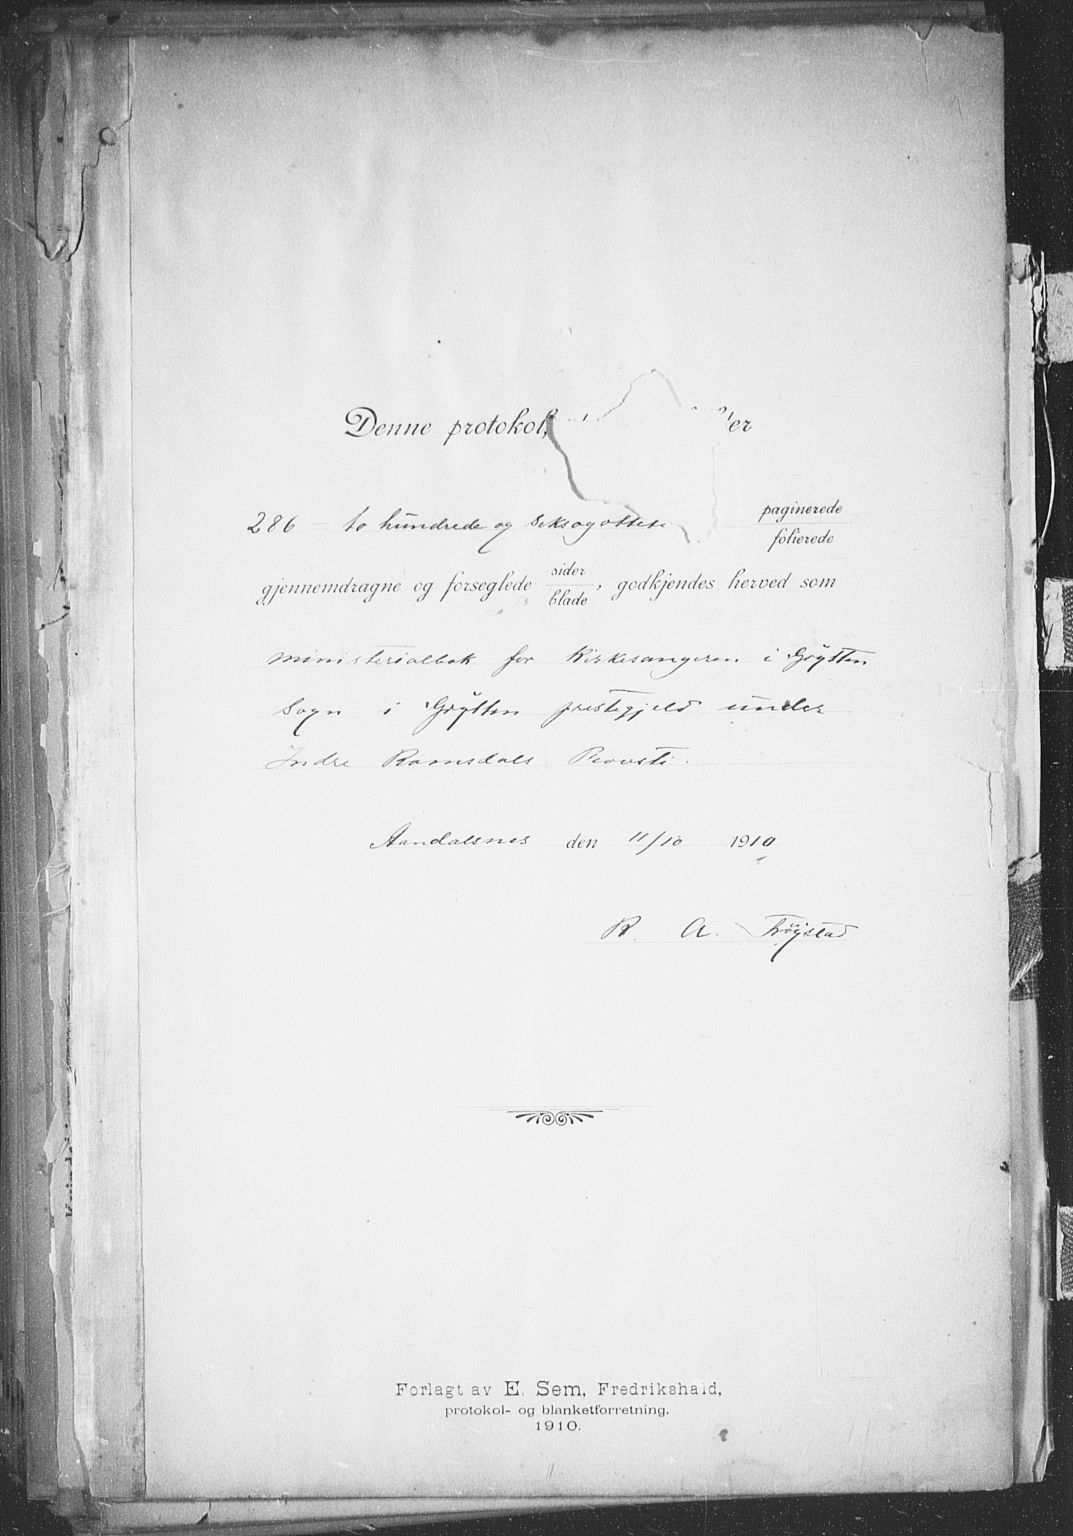 Denne protokol,
286 = to hundrede og seksogotteti paginerede
folierede
gjennemdragne og forseglede sider
blade, godkjendes herved som
ministerialbok for Kirkesangeren i Grytten
Sogn i Grytten prestegjeld under
Indre Romsdals Provsti.
Aandalsnes den 11/10 1910
R. A. Frøystad
Forlagt av E. Sem, Fredrikshald,
protokol- og blanketforretning.
1910.